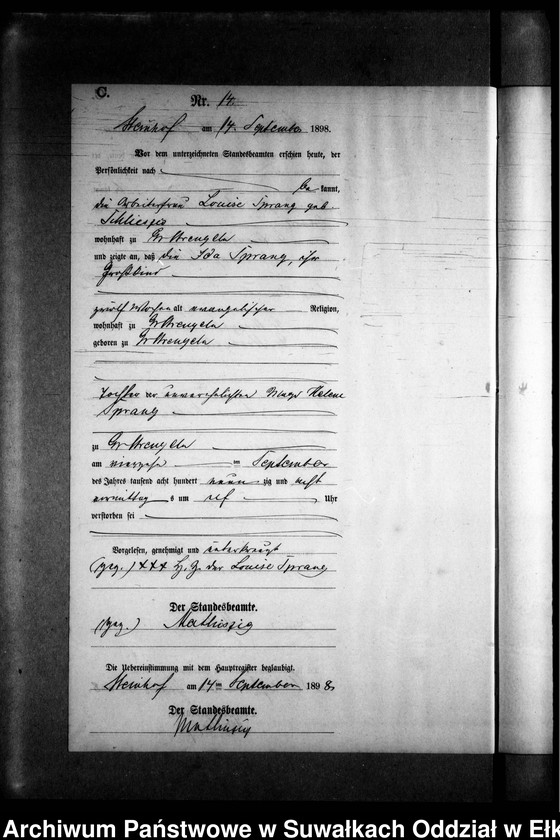 C.
Nr. 14.
Steinhof am 14. September 1898.
Vor dem unterzeichneten Standesbeamten erschien heute, der
Persönlichkeit nach
be kannt,
die Arbeiterfrau Louise Sprang geb.
wohnhaft zu Gr Strengeln
und zeigte an, daß die Ida Sprang, ihr
Großkind
zwölf Wochen alt evangelischer Religion,
wohnhaft zu Gr Strengeln
geboren zu Gr Strengeln
Tochter der unverehelichten Magd Helene
Sprang
zu Gr Strengeln
am vierzehn ten September
des Jahres tausend acht hundert neun zig und acht
vormittag s um elf Uhr
verstorben sei
Vorgelesen, genehmigt und unterkreuzt
(gez.) +++ H. Z. der Louise Sprang
Der Standesbeamte.
(gez.) Mathiszig
Die Uebereinstimmung mit dem Hauptregister beglaubigt.
Steinhof am 14ten September 1898
Der Standesbeamte.
Mathiszig
Archiwum Państwowe w Suwałkach Oddział w Ełk